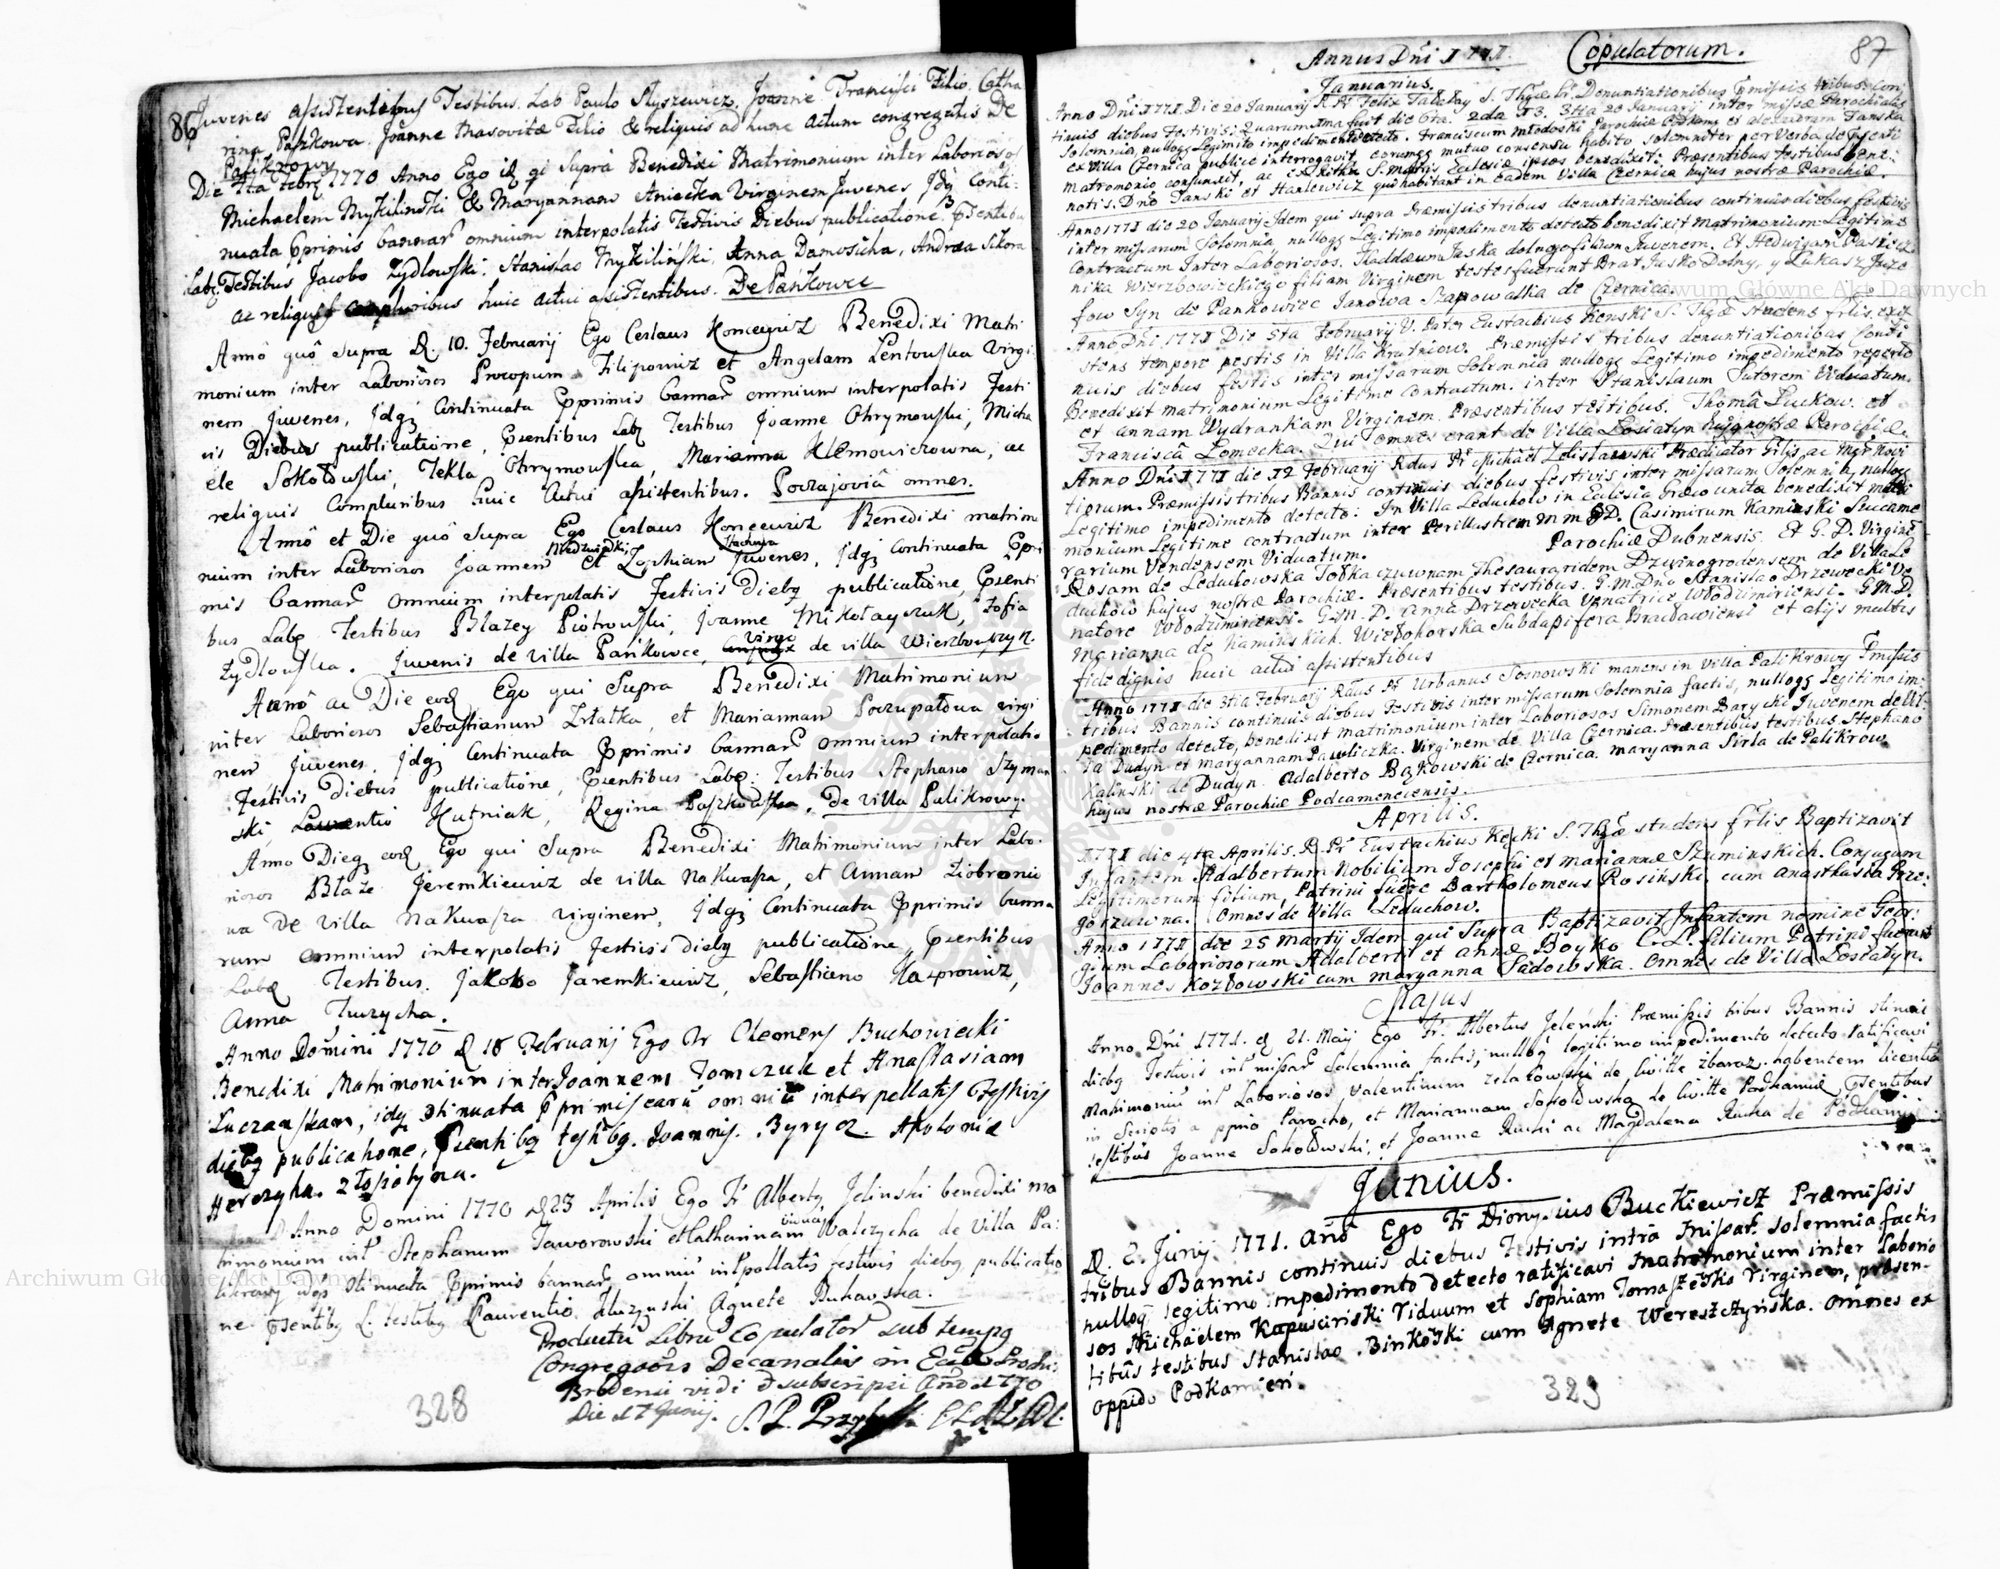 86
Juvenes assistentibus Testibus. Lab Paulo Styszewicz, Joanne Francisci Filio. Catha
rina Paszkowa. Joanne Masovitæ Filio & reliquis ad hunc actum congregatis De
Palikrowy
Die 7ma Febrj 1770 Anno Ego id qi Supra Benedixi Matrimonium inter Laboriosos
Michaelem Mykilinski & Maryannam Virginem Juvenes Jdq Conti:
nuata Cprimis bannar omnium interpolatis Festivis Diebus publicatione. Psentibus
Lab. Testibus Jacobo Zydlowski. Stanislao Mykiliński, Anna Damosicha, Andrea Sikora
ac reliquis compluribus huic actui assistentibus. De Pańkowce
Annô quô Supra D. 10. Februarij Ego Ceslaus Koncewicz Benedixi Matri
monium inter Laboriosos Procopum Filipowicz et Angelam Lentowska Virgi
nem Juvenes, Jdqz Continuata Cprimis bannar omnium interpolatis Festi
vis Diebus publicatione, Psentibus Lab Testibus Joanne Chrymowski, Micha
ele Sokołowski, Tekla Chrymowska, Marianna Klemowiczowna, ac
reliquis Compluribus huic Actui assistentibus. Poczajoviâ omnes.
Annô et Die quô Supra Ego Ceslaus Konceewicz Benedixi matrimo
Niedzwidzki Stachura
nium inter Laboriosos Joannem et Zophiam Juvenes, Jdqz Continuata Cpri
mis bannar omnium interpolatis Festivis Diebq publicatione, Psenti
bus Lab Testibus Błazey Piotrowski, Joanne Mikołayczuk, Zofia
Zydłowska. Juvenis de villa Pańkowce, Virgo de villa Wierzbowczyk.
Annô ac Die eod Ego qui Supra Benedixi Matrimonium
inter Laboriosos Sebastianum Zrłatka, et Mariannam Poczupałowa virgi
nem Juvenes Jdqz Continuata Cprimis bannar omnium interpolatis
Festivis Diebus publicatione, Psentibus Lab: Testibus Stephano Szyman
ski, Laurentio Hutniak, Regina Paszkowska, de villa Palikrowy.
Anno Dieq eod Ego qui Supra Benedixi Matrimonium inter Labo:
riosos Błaze Jeremkiewicz de villa Nakwasza, et Annam Ziobronio
wa de villa Nakwasza virginem, Jdqz Continuata Cprimis banna
rum omnium interpolatis Festivis diebq publicatione, Psentibus
Lab Testibus. Jakobo Jaremkiewicz, Sebastiano Kasprowicz,
Anna Turzycha.
Anno Domini 1770 D 18 Februarij Ego Fr Clemens Buchowiecki
Benedixi Matrimonium inter Joannem Tomczuk et Anastasiam
Luczanskam, idq 9tinuata Cprimis bannarū omniū interpellatis Festivis
diebq publicatione, Psentibq testibq. Joannis. Byrycz. Apolonia
Herczyka. Złosiotyna.
Anno Domini 1770 D 23 Aprilis Ego Fr Albertq Jelinski benedixi ma
trimonium inl Stephanum Jaworowski et Catharinam viduas Walczycha de Villa Pa:
likrowy idqz 9tinuata Cprimis bannar omniu inlpollatis festivis diebq publicatio
ne Psentibq L. testibq Laurentio Kluzynski Agnete Bukowska.
Productū Librū Copulator sub tempq
Congregaōis Decanalis in Eccla Prohi:
Brodensi vidi & subscripsi Anō 1770
Die 17 Junij.
328
87
Annus Dñi 1771. Copulatorum.
Januarius.
Anno Dñi 1771. Die 20 Januarij R. Pr Felix Taberay S. Thgæ Lr. Denuntiationibus Pmissis tribus Con
tinuis diebus festivis: Quarum 1ma fuit die 6ta. 2da 13. 3tia 20 Januarij inter missæ Parochialis
Solemnia, nulloqz Legitimo impedimento detecto. Franciscum Młodoski Parochiæ et Alexandram Janska
ex Villa Czernica publice interrogavit, eorumqz mutuo consensu habito solemniter per verba de Psenti
Matromonio conjunxit, ac ex Rithu S. Matris Eclesiæ ipsos benedixit. Præsentibus testibus bene:
notis. Dño Janski et Hanlewicz qui habitant in eadem Villa Czernica hujus nostræ Parochiæ.
Anno 1771 die 20 Januarij Idem qui supra Præmissis tribus denuntiationibus continuis diebus festivis
inter missarum Solemnia, nulloqz Legitimo impedimento detecto benedixit Matrimonium Legitime
Contractum Inter Laboriosos. Thaddæum Jaska dolnego filium Juvenem. Et Hedwigam Pasiecz
nika Wierzbowieckiego filiam Virginem testes fuerunt Brat Jasko Dolny, y Lukasz Juzo
fow Syn de Pankowiec Janowa Szapowałka de Czernica.
Anno Dñi 1771 Die 5ta Februarij V. Pater Eustachius Kienski S. Thgæ Studens frlis. exi
stens tempore pestis in Villa Krutniow. Præmissis tribus denuntiationibus Conti
nuis diebus festis inter missarum Solemnia nulloqz Legitimo impedimento reperto
Benedixit Matrimonium Legitime Contractum. inter Stanislaum Sutorem Viduatum.
et Annam Wydrankam Virginem. Præsentibus testibus. Thomâ Luckow. et
Francisca Lomecka. Qui omnes erant de Villa Losiatyn hujq nostræ Parochiæ.
Anno Dñi 1771 die 12 Februarij Rdus Pr Michaël Zelislawski Prædicator Gflis, ac Mgr Novi
tiorum. Præmissis tribus Bannis continuis diebus festivis inter missarum Solemnia, nulloqz
Legitimo impedimento detecto: In Villa Leduchow in Eclesia Græco unita benedixit Matri
monium Legitime contractum inter Perillustrem M m GD. Casimirum Kaminski Succame
rarium Vendensem Viduatum. Parochiæ Dubnensis. Et G. D. Virginē
Rosam de Leduchowska Tobka czuwnam Thesauraridem Dzwinogrodensem de Villa Le
duchow hujus nostræ Parochiæ. Præsentibus testibus. G. M. Dño Stanislao Drzewecki Ve
natore Włodzimiriensi. G. M. D. Anna Drzewecka Venatrice Włodzimiriensi. G. M. D.
Marianna de Kaminskich. Wielohorska Subdapifera Bracławiensi et alijs multis
fide dignis huic actui assistentibus
Anno 1771 die 3tia Februarij Rdus Pr Urbanus Sosnowski manens in Villa Palikrowy Pmissis
tribus Bannis continuis diebus festivis inter missarum Solemnia factis, nulloqz Legitimo im:
pedimento detecto, benedixit matrimonium inter Laboriosos Simonem Barycki Juvenem de Vil:
la Dudyn et Maryannam Pawliczka. Virginem de Villa Czernica. Præsentibus testibus. Stephano
Kalinski de Dudyn. Adalberto Bąkowski de Czernica. Maryanna Sirła de Palikrow.
hujus nostræ Parochiæ Podcamenciensis.
Aprilis.
1771 die 4ta Aprilis. R. Pr Eustachius Kęcki S. Thgæ studens frlis Baptizavit
Infantem Adalbertum Nobilium Josephi et Mariannæ Szuminskich. Conjugum
Legitimorum filium, Patrini fuere Bartholomeus Rosinski, cum Anasthasia Grze:
gorzuwna. Omnes de Villa Leduchow.
Anno 1771 die 25 Martij Idem qui Supra Baptizavit Infantem nomine Geor:
gium Laboriosorum Adalberti et Annæ Boyko C. L. filium Patrini fuerunt
Joannes Kozłowski cum Maryanna Sadowska. Omnes de Villa Losiatyn.
Majus
Anno Dñi 1771. D 21. Maij Ego Fr. Albertus Jeleński Præmissis tribus Bannis 9tinui
diebq Festivis inl missar Solemnia factis; nulloq legitimo impedimento detecto Ratificavi
Matrimoniū inl Laboriosos Valentinum Zelakowski de Civitte Zbaraz. habentem licentiā
in Scriptis a pprio Parocho, et Mariannam Sokołowska de Civitte Podkamiē Psentibus
testibus Joanne Sokołowski, et Joanne Rucki ac Magdalena Rucka de Podkamiē
Junius.
D. 2. Junij 1771. Anô Ego Fr Dionysius Buckiewicz Præmissis
tribus Bannis continuis diebus Festivis intrà Missar. solemnia factis
nulloq legitimo impedimento detecto ratificavi Matrimonium inter Laborio
sos Michäelem Kapuscinski Viduum et Sophiam Tomaszesko Virginem, præsen-
tibūs testibus Stanislao Binkoski cum Agnete Wereszczyńska. Omnes ex
oppido Podkamień.
329
Archiwum Główne Akt Dawnych
Archiwum Główne Akt Dawnych